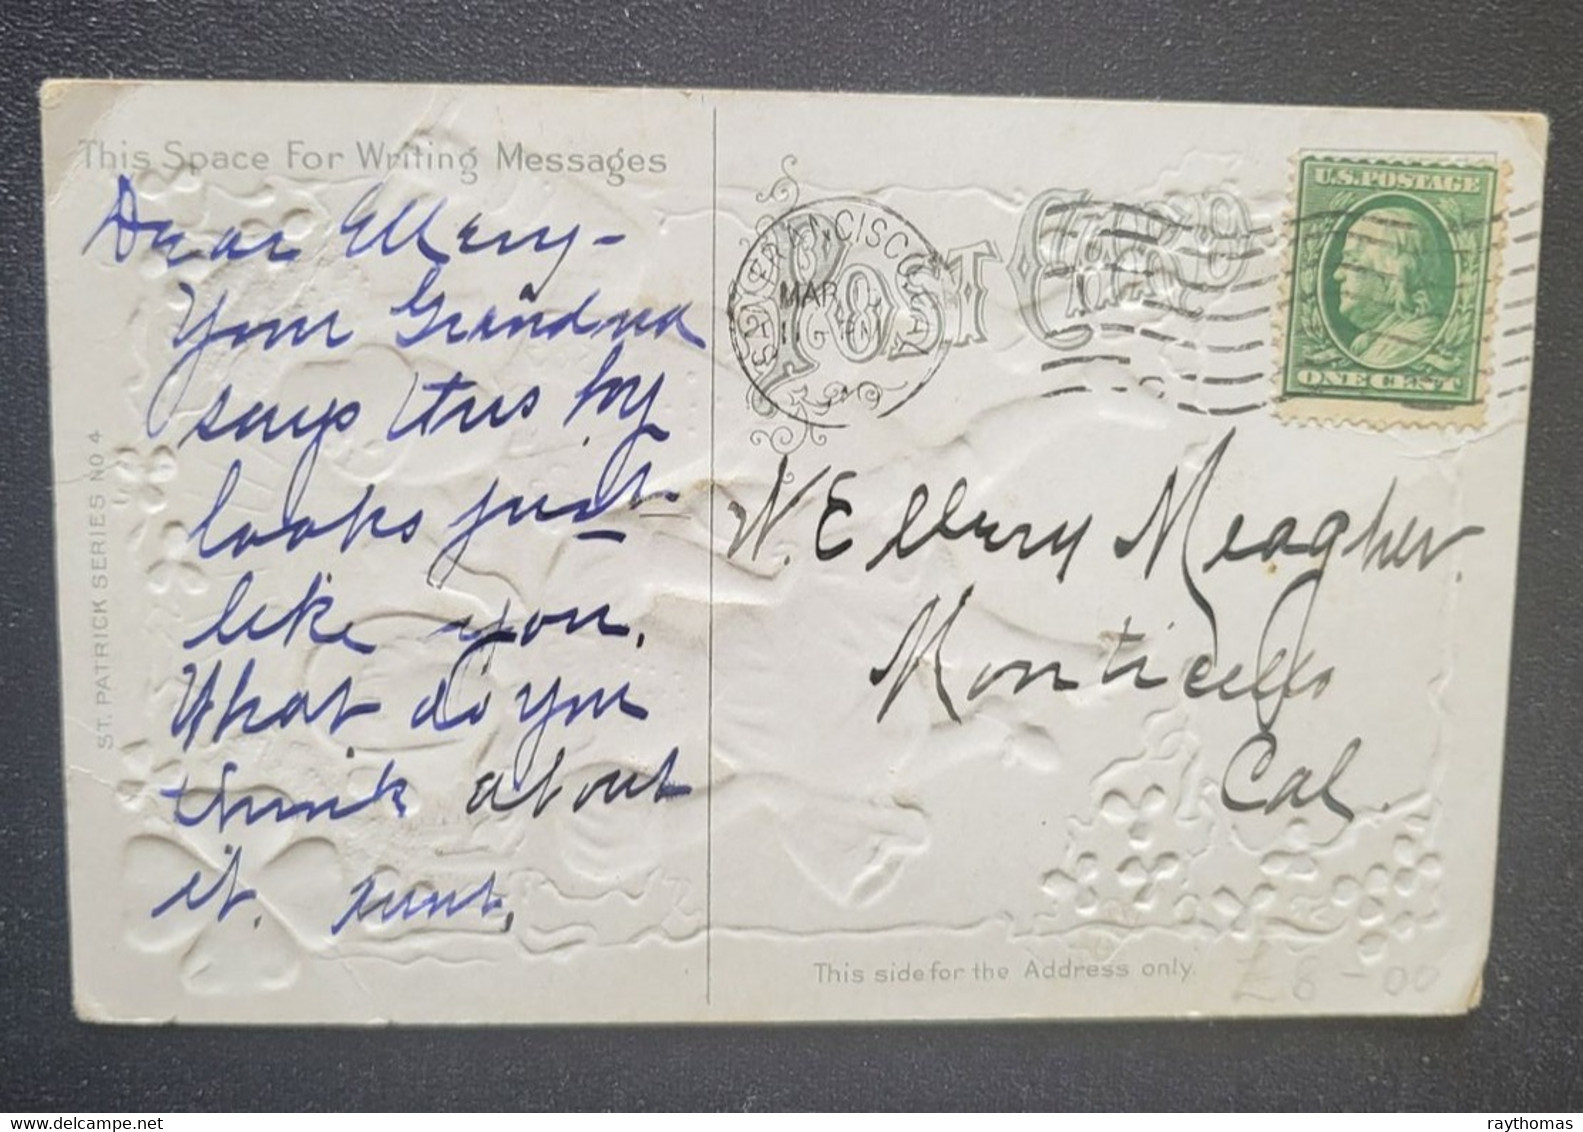 This Space For Writing Messages
Dear Ellery-
Your Grandma
says this boy
looks just
like you.
What do you
think about
it. Aunt.
ST. PATRICK SERIES NO 4
POST CARD
SAN FRANCISCO, CAL.
MAR
U.S. POSTAGE
ONE CENT
W. Ellery Meagher.
Monticello
Cal.
This side for the Address only.
£6-00
www.delcampe.net
raythomas